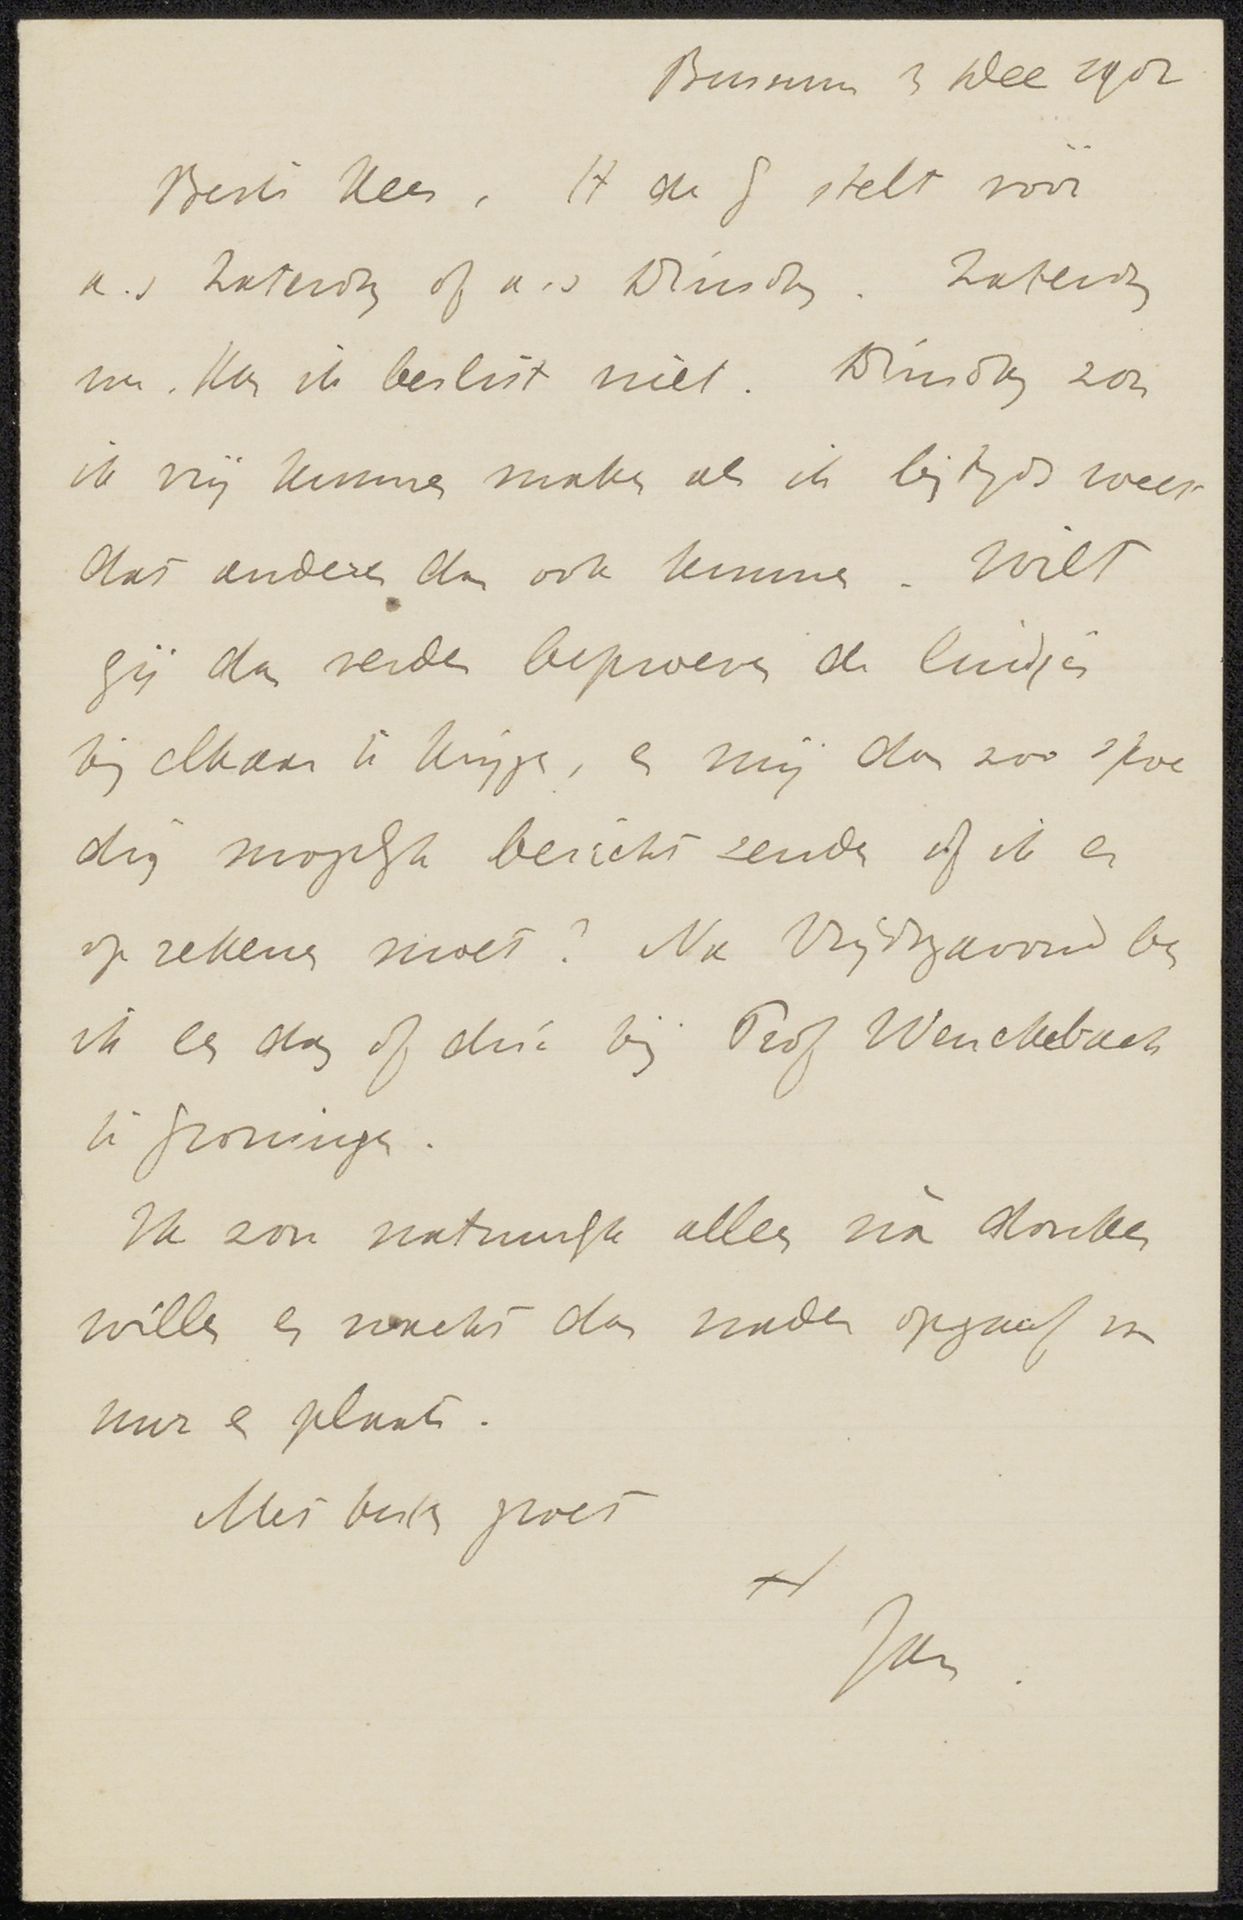 Bussum 3 Dec 1902
Beste Kees, H de G stelt vóór
a.s Zaterdag of a.s Dinsdag. Zaterdag
nu. kan ik beslist niet. Dinsdag zou
ik vrij kunnen maken als ik bijtyds weet
dat anderen dan ook kunnen. Wilt
gij dan verder beproeven de luidjes
bij elkaar te krijgen, en mij dan zoo spoe
dig mogelijk bericht zenden of ik er
op rekenen moet? Na Vrijdagavond ben
ik een dag of drie bij Prof Wenckebach
te Groningen.
Ik zou natuurlijk alleen ná donker
willen en wacht dan nader opgaaf van
uur en plaats.
Met besten groet
Jan.